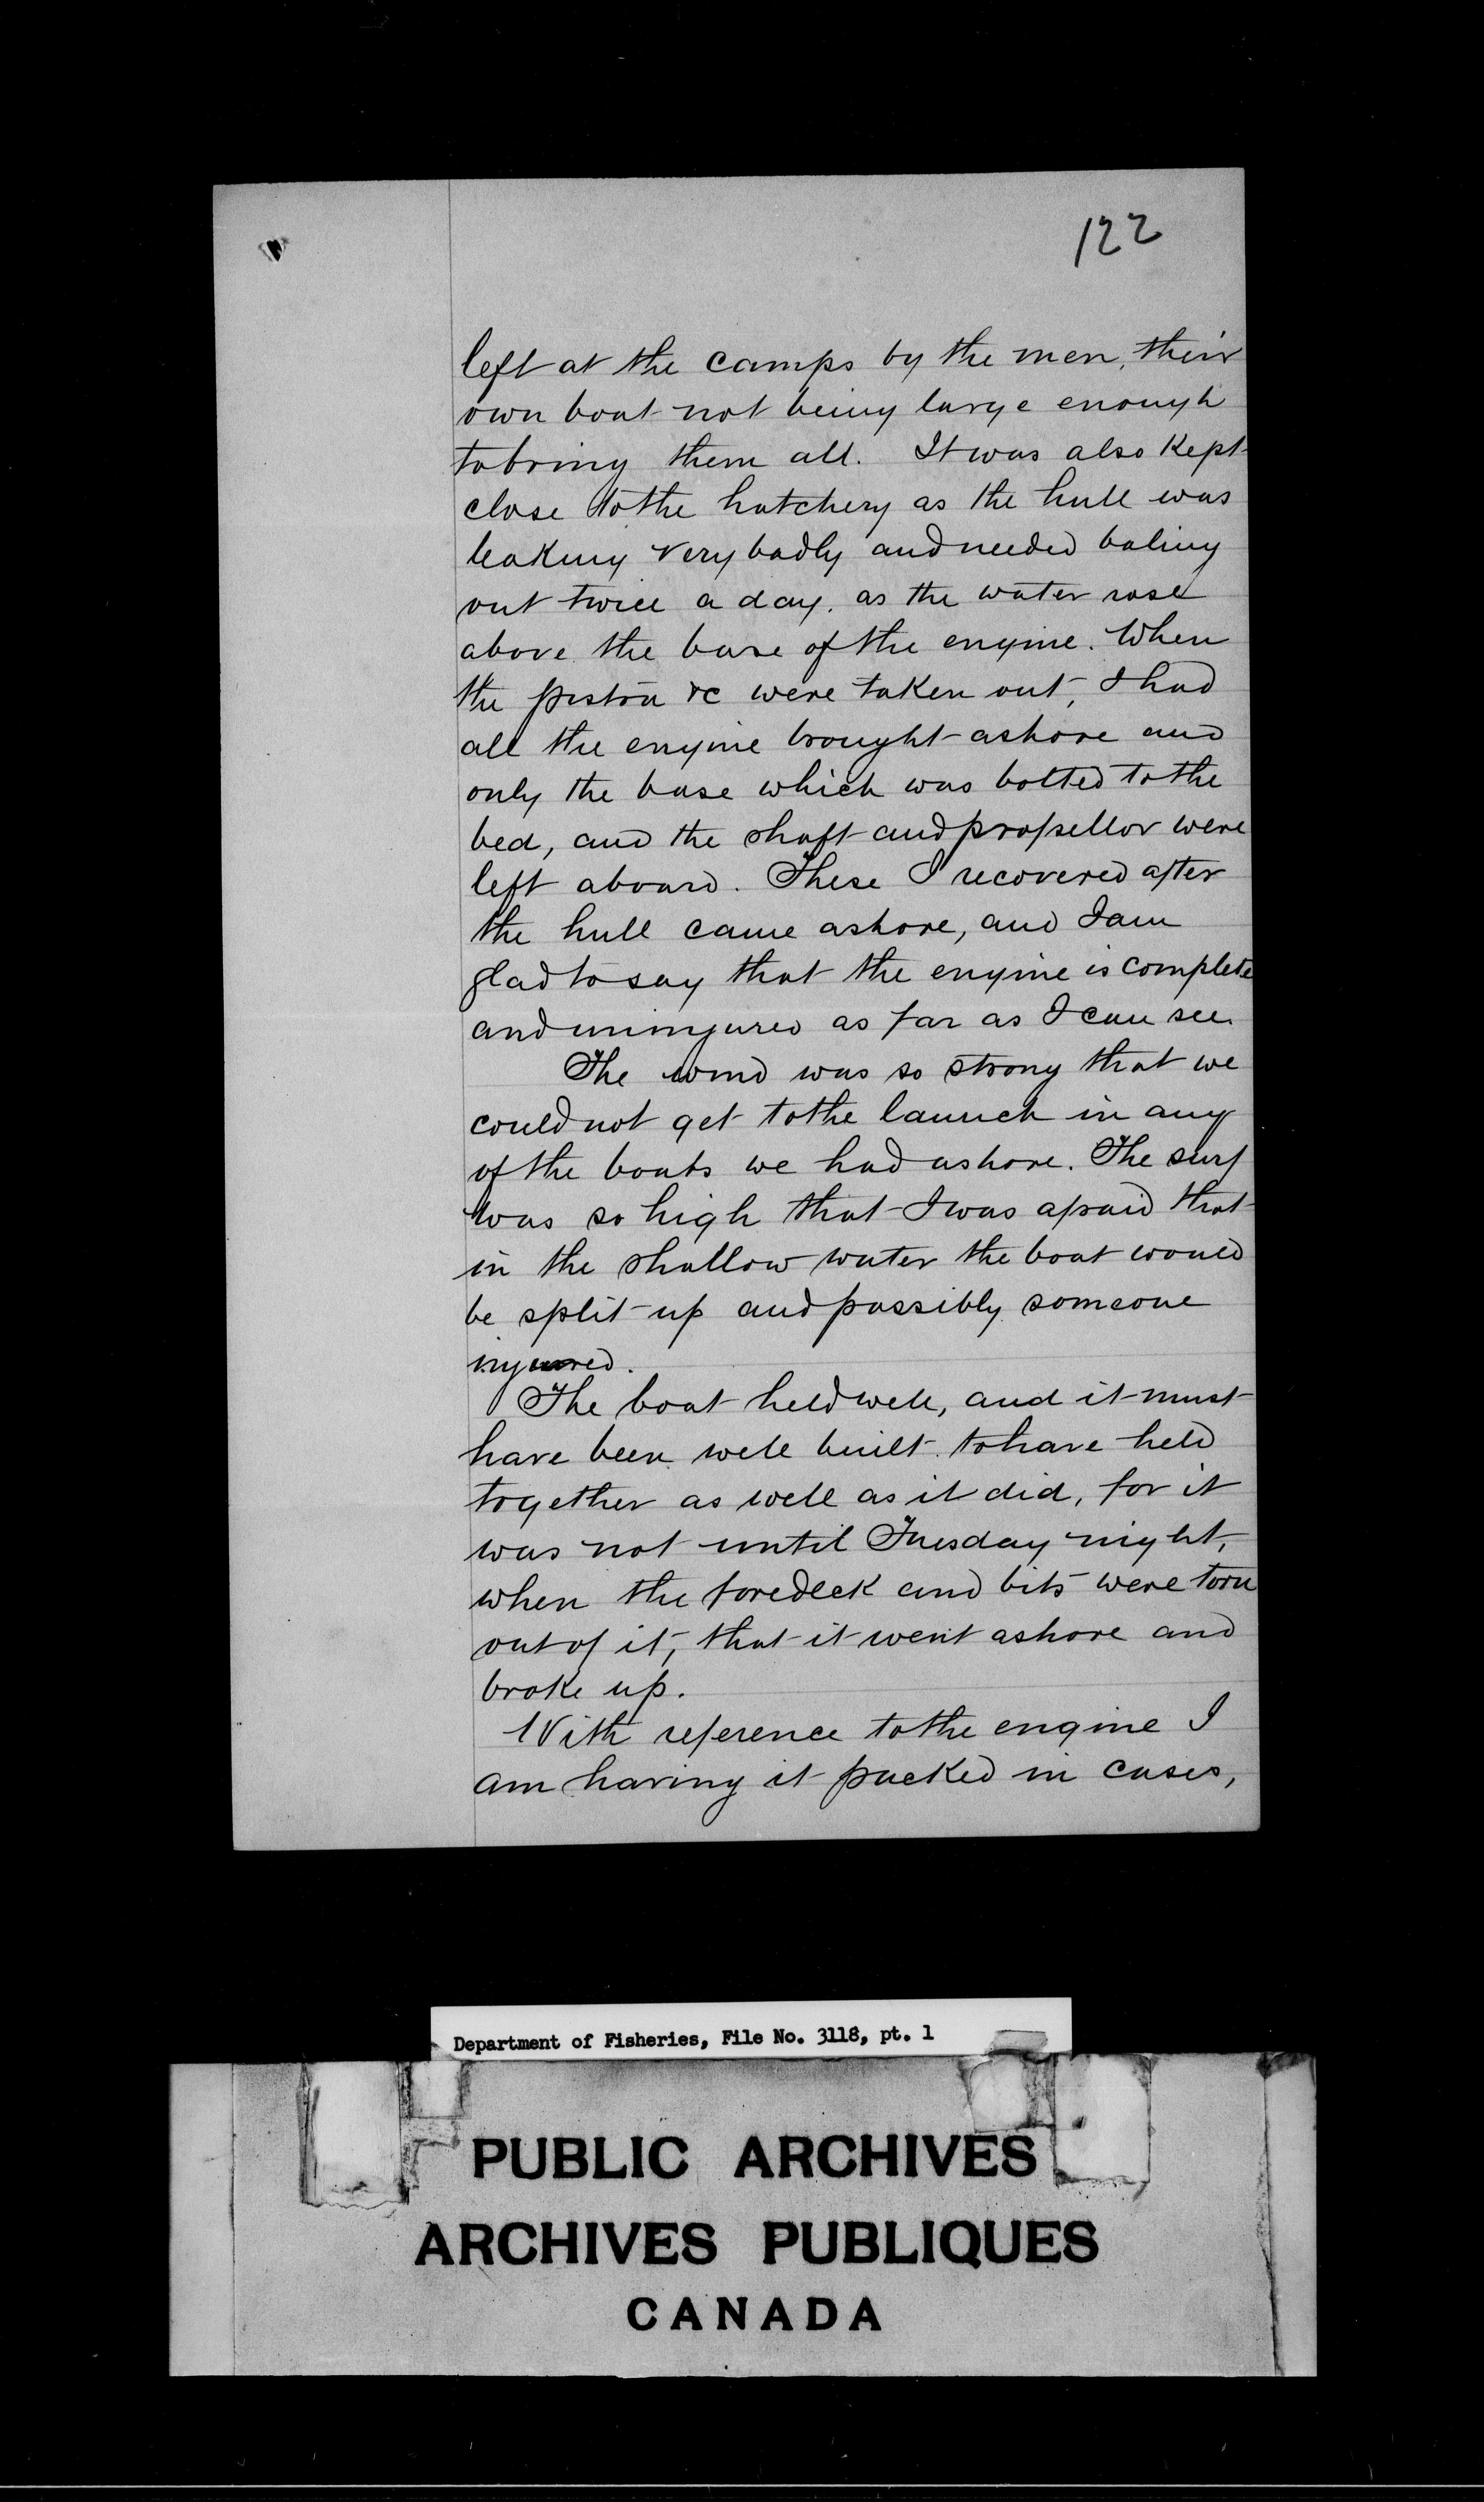 122
left at the camps by the men, their
own boat not being large enough
to bring them all. It was also kept
close to the hatchery as the hull was
leaking very badly and needed baling
out twice a day, as the water rose
above the base of the engine. When
the piston &c were taken out, I had
all the engine brought ashore and
only the base which was bolted to the
bed, and the shaft and propellor were
left aboard. These I recovered after
the hull came ashore, and I am
glad to say that the engine is complete
and uninjured as far as I can see.
The wind was so strong that we
could not get to the launch in any
of the boats we had ashore. The surf
was so high that I was afraid that
in the shallow water the boat would
be split up and possibly someone
injured.
The boat held well, and it must
have been well built to have held
together as well as it did, for it
was not until Tuesday night,
when the foredeck and bits were torn
out of it, that it went ashore and
broke up.
With reference to the engine I
am having it packed in cases,
Department of Fisheries, File No. 3118, pt. 1
PUBLIC ARCHIVES
ARCHIVES PUBLIQUES
CANADA